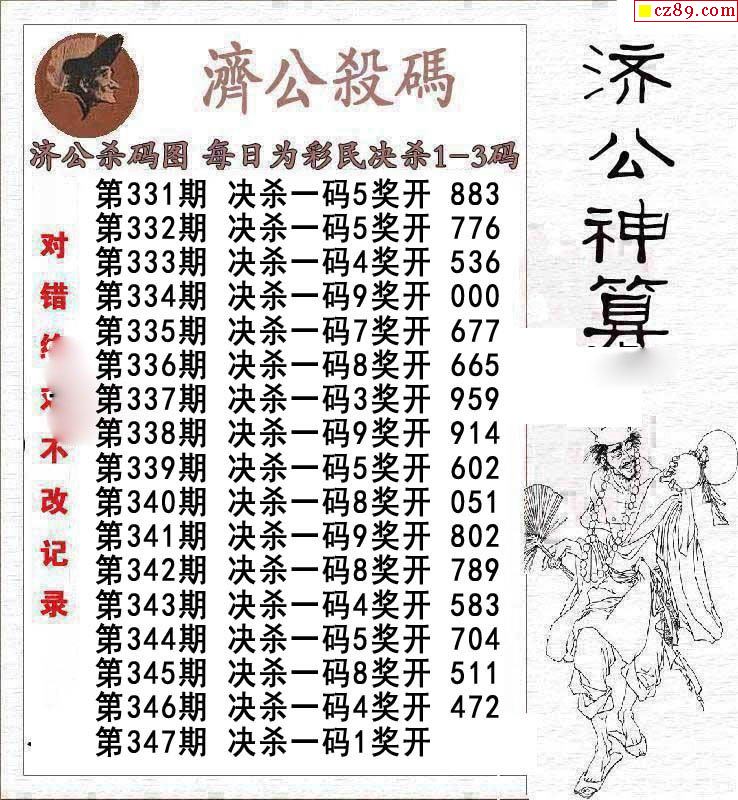 cz89.com
濟公殺碼
济公杀码图 每日为彩民决杀1-3码
第331期 决杀一码5奖开 883
第332期 决杀一码5奖开 776
第333期 决杀一码4奖开 536
第334期 决杀一码9奖开 000
第335期 决杀一码7奖开 677
第336期 决杀一码8奖开 665
第337期 决杀一码3奖开 959
第338期 决杀一码9奖开 914
第339期 决杀一码5奖开 602
第340期 决杀一码8奖开 051
第341期 决杀一码9奖开 802
第342期 决杀一码8奖开 789
第343期 决杀一码4奖开 583
第344期 决杀一码5奖开 704
第345期 决杀一码8奖开 511
第346期 决杀一码4奖开 472
第347期 决杀一码1奖开
对错不改记录
济公神算